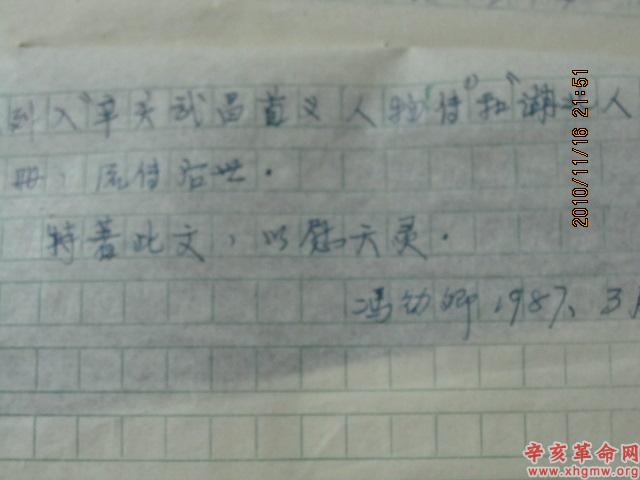 列入"辛亥武昌首义人物传"和"湖北人
册，流传后世．
特著此文，以慰天灵．
冯幼卿 1987、3
2010/11/16 21:51
辛亥革命网
www.xhgmw.org